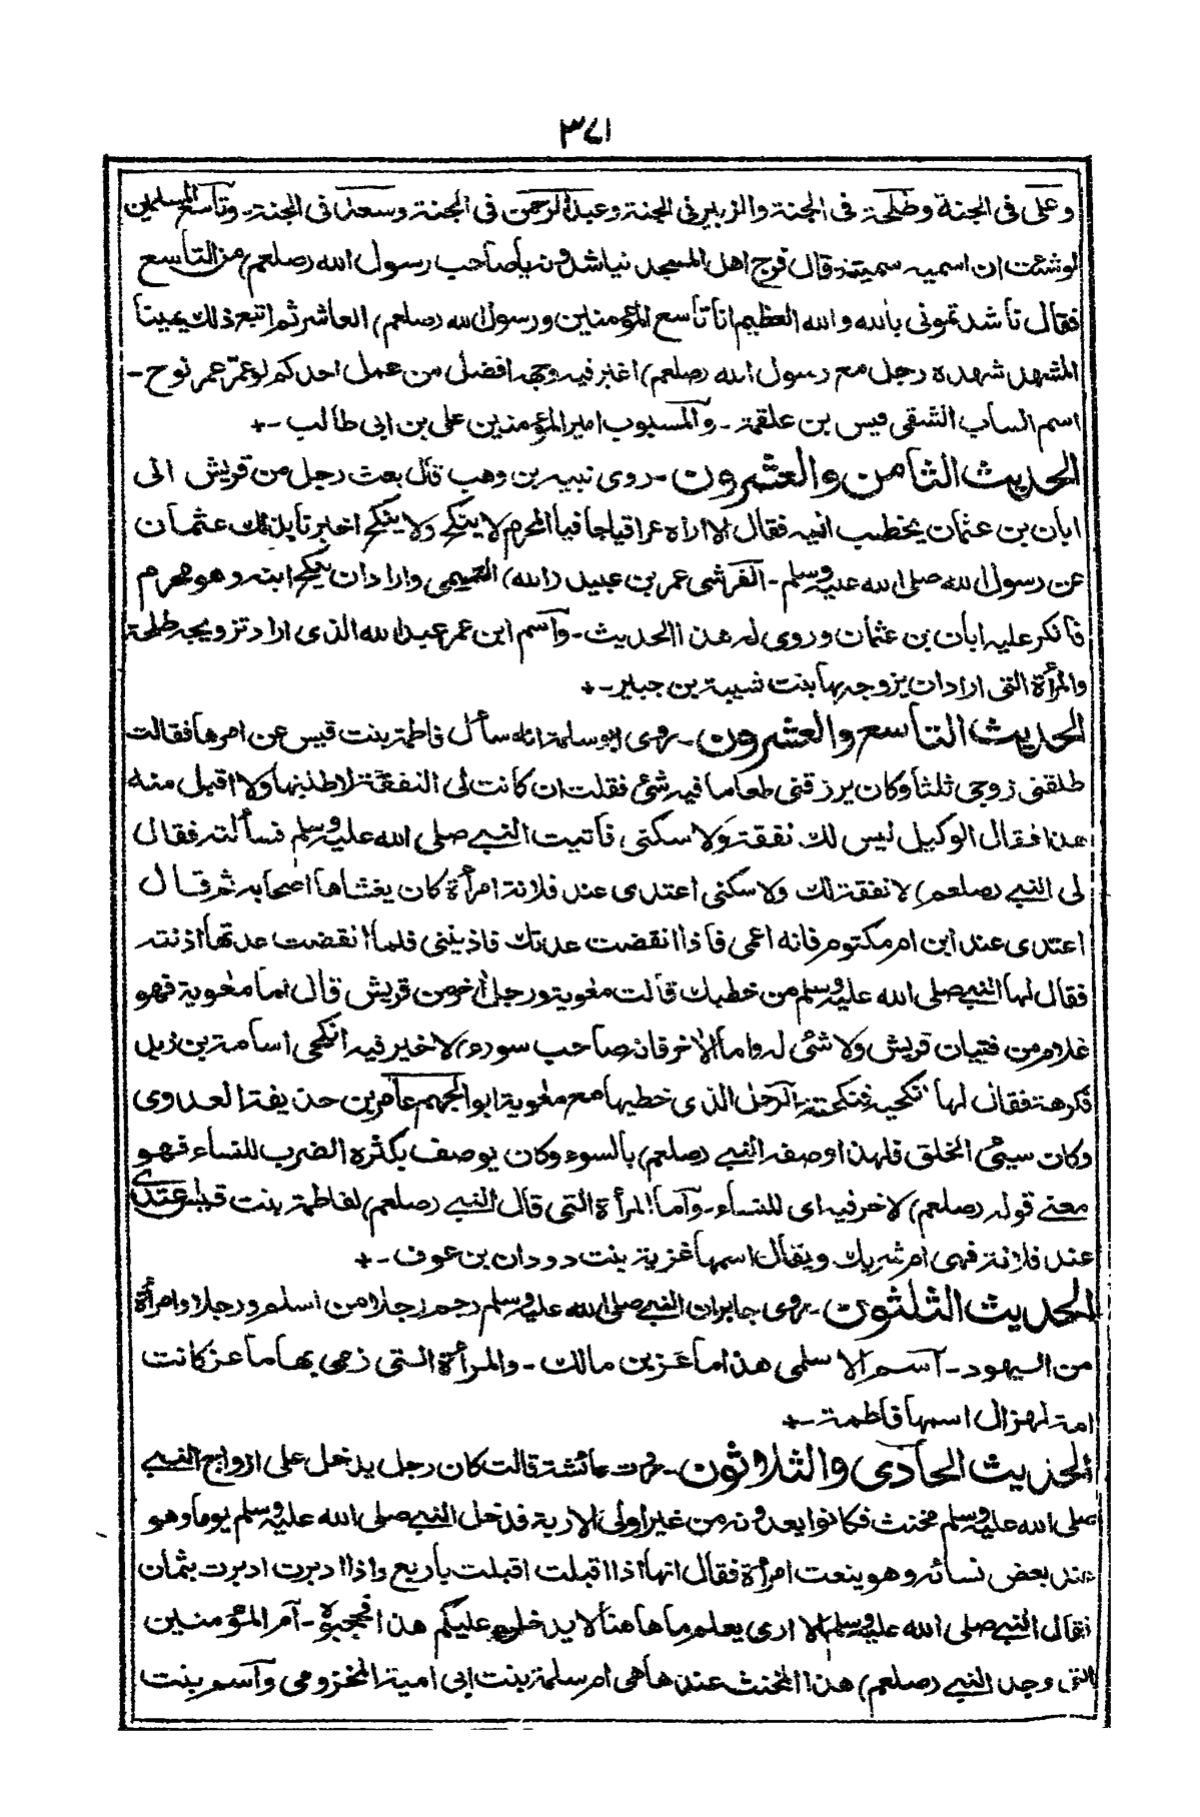 ٣٧١
وعلى فى الجنة وطلحة فى الجنة والزبير فى الجنة وعبد الرحمن فى الجنة وسعد فى الجنة ـ وتاسع المسلمين
لو شئت ان اسميه سميته ـ قال فرج اهل المسجد نياشدونه يا صاحب رسول الله (صلعم) من التاسع
فقال ناشدتمونى بالله والله العظيم انا تاسع المؤمنين ورسول الله (صلعم) العاشر ثم اتبع ذلك يمينا
المشهد شهده رجل مع رسول الله (صلعم) اغبر فيه وجهه افضل من عمل احدكم لو عمّر عمر نوح ـ
اسم الساب الشقى قيس بن علقمة ـ والمسبوب امير المؤمنين على بن ابى طالب ـ+
الحديث الثامن والعشرون ـ روى نبيه بن وهب قال بعث رجل من قريش الى
ابان بن عثمان يخطب اليه فقال الا اراه عراقيا جافيا المحرم لا ينكح ولا ينكح اخبرنا بذلك عثمان
عن رسول الله صلى الله عليه وسلم ـ القرشى عمر بن عبيد (الله) التميمى وارادان ينكح ابنه وهو محرم
فانكر عليه ابان بن عثمان وروى له هذا الحديث ـ واسم ابن عمر عبد الله الذى اراد تزويجه طلحة
والمرأة التى ارادان يزوجه بها بنت شيبة بن جبير ـ+
الحديث التاسع والعشرون ـ روى ابو سلمة انه سأل فاطمة بنت قيس عن امرها فقالت
طلقنى زوجى ثلثا وكان يرزقنى طعاما فيه شئ فقلت ان كانت لى النفقة لاطلبنها ولا اقبل منه
هذا فقال الوكيل ليس لك نفقة ولا سكنى فاتيت النبى صلى الله عليه وسلم فسألته فقال
لى النبى (صلعم) لا نفقة لك ولا سكنى اعتدى عند فلانة امرأة كان يغشاها اصحابه ثم قال
اعتدى عند ابن ام مكتوم فانه اعمى فاذا انقضت عدتك فاذنينى فلما انقضت عدتها اذنته
فقال لها النبى صلى الله عليه وسلم من خطبك قالت معوية ورجل اخر من قريش قال اما معوية فهو
غلام من فتيان قريش ولا شئ له واما الاخر فانه صاحب سوء (و) لا خير فيه انكحى اسامة بن زيد
فكرهته فقال لها انكحيه فنكحته ـ الرجل الذى خطبها مع معوية ابو الجهم عامر بن حذيفة العدوى
وكان سيئ الخلق فلهذا وصفه النبى (صلعم) بالسوء وكان يوصف بكثرة الضرب للنساء فهو
معنى قوله (صلعم) لا خر فيه اى للنساء ـ واما المرأة التى قال النبى (صلعم) لفاطمة بنت قيس اعتدى
عند فلانة فهى ام شريك ويقال اسمها غزية بنت دودان بن عوف ـ+
الحديث الثلثون ـ روى جابر ان النبى صلى الله عليه وسلم رجم رجلا من اسلم ورجلا وامرأة
من اليهود ـ اسم الاسلمى هذا ماعز بن مالك ـ والمرأة التى زعى بها ماعز كانت
امة لهزال اسمها فاطمة ـ+
الحديث الحادى والثلاثون ـ روت عائشة قالت كان رجل يدخل على ازواج النبى
صلى الله عليه وسلم مخنث فكانوا يعدونه من غير اولى الاربة فدخل النبى صلى الله عليه وسلم يوما وهو
عند بعض نسائه وهو ينعت امرأة فقال انها اذا اقبلت اقبلت باربع واذا ادبرت ادبرت بثمان
فقال النبى صلى الله عليه وسلم الا ارى يعلم ما هاهنا لا يدخلن عليكم هذا فحجبوه ـ ام المؤمنين
التى وجد النبى (صلعم) هذا المخنث عندها هى ام سلمة بنت ابى امية المخزومى واسم بنت